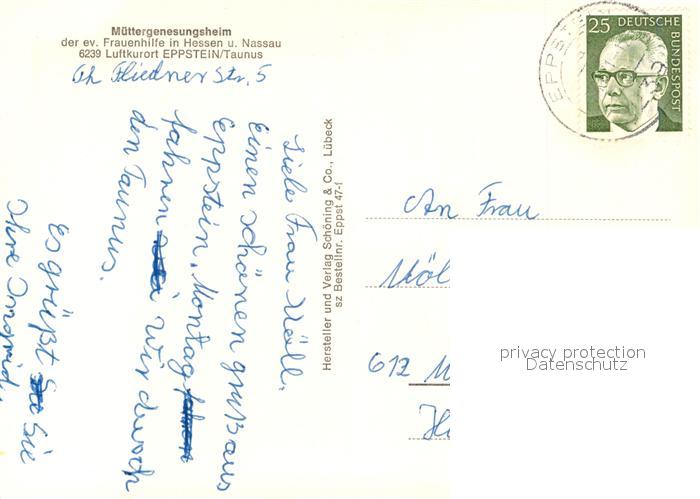 Müttergenesungsheim
der ev. Frauenhilfe in Hessen u. Nassau
6239 Luftkurort EPPSTEIN/Taunus
Th Fliedner Str. 5
Liebe Frau Möll.
Einen schönen gruß aus
Eppstein. Montag
fahren wir durch
den Taunus.
Es grüßt Sie
Ihre Ingrid.
Hersteller und Verlag Schöning & Co., Lübeck
sz Bestellnr. Eppst 47-f
25 DEUTSCHE
BUNDESPOST
EPPSTEIN
An Frau
Möl
612 M
privacy protection
Datenschutz